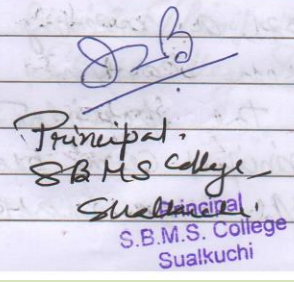 Principal.
SBMS College
Sualkuchi.
Principal
S.B.M.S. College
Sualkuchi